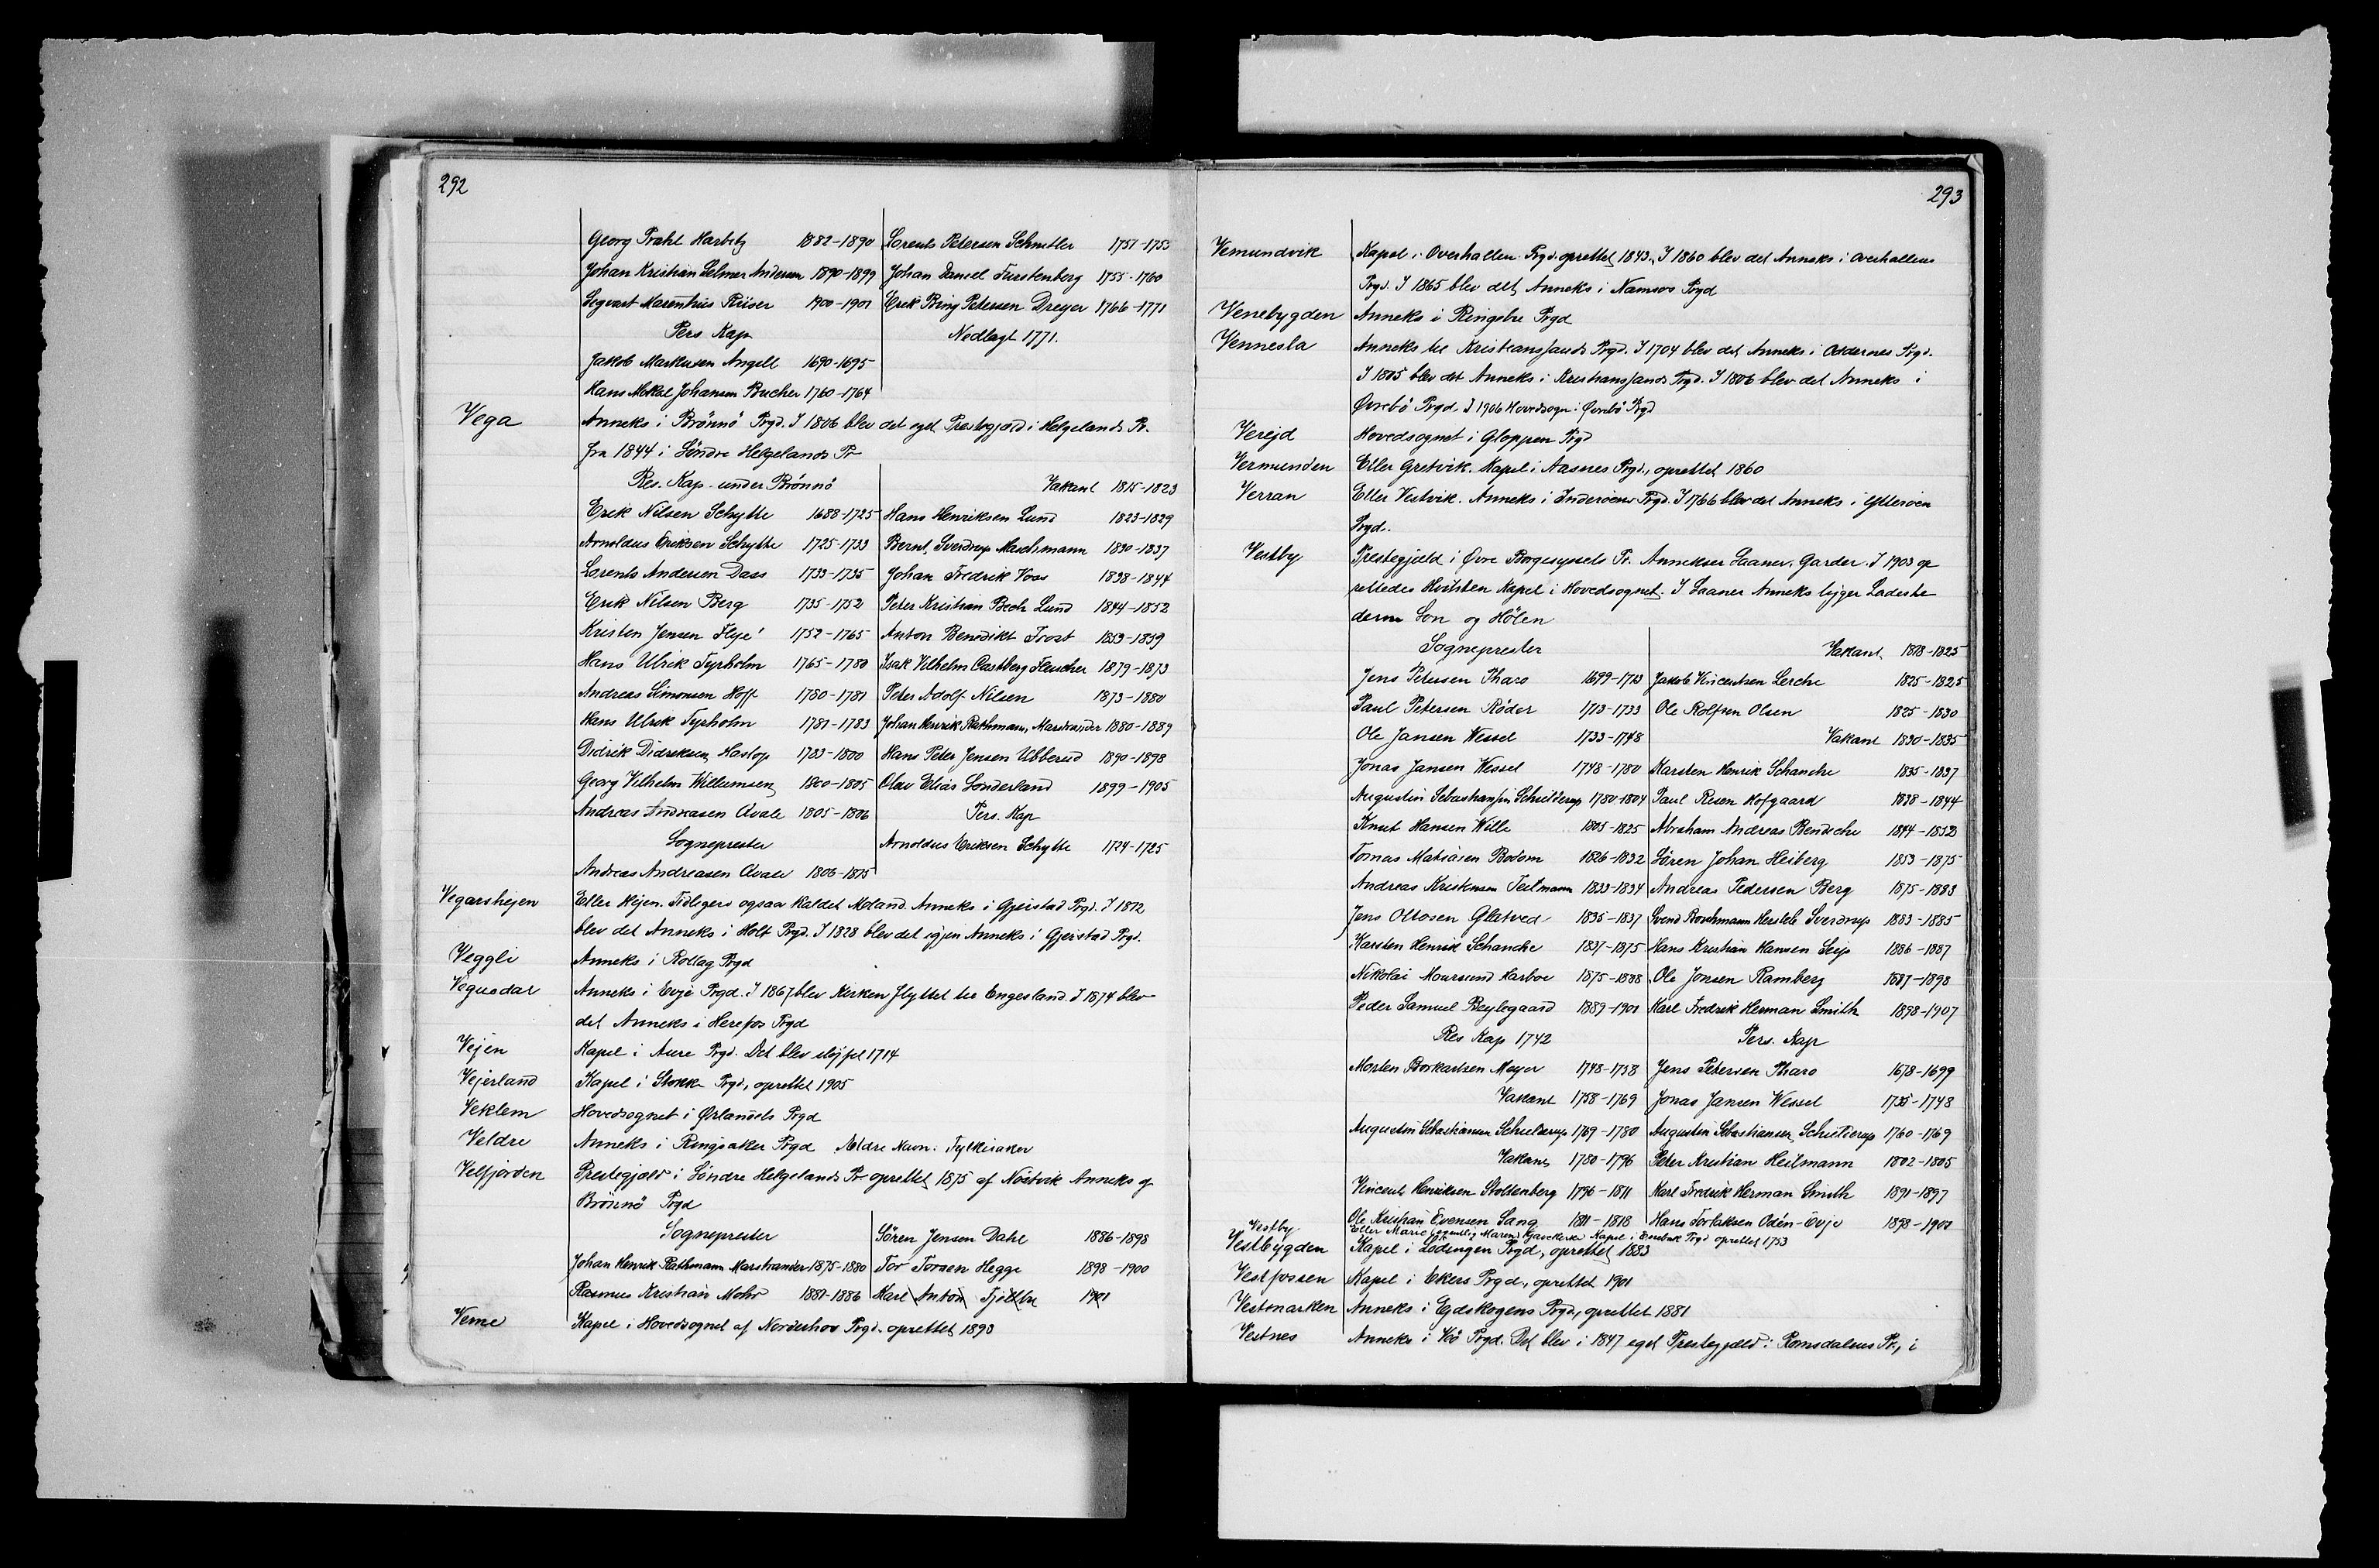 292
Georg Prahl Harbitz 1882-1890 Lorents Petersen Schmitler 1751-1755
Johan Kristian Selmer Andersen 1890-1899 Johan Daniel Furstenberg 1755-1760
Sigvart Marenthius Riiser 1900-1901 Erik Bing Petersen Dreyer 1766-1771
Pers. Kap. Nedlagt 1771.
Jakob Markusen Angell 1690-1695
Hans Mikkel Johansen Bucher 1760-1764
Vega Anneks i Brönnö Prgd. I 1806 blev det eget Prestegjæld i Helgelands Pr.
fra 1844 i Söndre Helgelands Pr
Res. Kap. under Brönnö Vakant 1815-1823
Erik Nilsen Schytte 1688-1725 Hans Henriksen Lund 1823-1829
Arnoldus Eriksen Schytte 1725-1733 Bernt Sverdrup Maschmann 1830-1837
Lorents Andersen Dass 1733-1735 Johan Fredrik Voss 1838-1844
Erik Nilsen Berg 1735-1752 Peter Kristian Bech Lund 1844-1852
Kristen Jensen Flye 1752-1765 Anton Benedikt Frost 1853-1859
Hans Ulrik Tyrholm 1765-1780 Isak Vilhelm Castberg Fleischer 1879-1873
Andreas Simonsen Hoff 1780-1781 Peter Adolf Nilsen 1873-1880
Hans Ulrik Tyrholm 1781-1783 Johan Henrik Rathmann Marstrander 1880-1889
Didrik Didriksen Hastop 1783-1800 Hans Peter Jensen Ubberud 1890-1898
Georg Vilhelm Willumsen 1800-1805 Olav Elias Sönderland 1899-1905
Andreas Andreasen Qvale 1805-1806 Pers. Kap
Sogneprester Arnoldus Eriksen Schytte 1724-1725
Andreas Andreasen Qvale 1806-1815
Vegarshejen Eller Hejen. Tidligere ogsaa kaldet Moland. Anneks i Gjerstad Prgd. I 1812
blev det Anneks i Holt Prgd. I 1828 blev det igjen Anneks i Gjerstad Prgd.
Veggli Anneks i Rollag Prgd
Vegusdal Anneks i Evje Prgd. I 1867 blev Kirken flyttet til Engesland. I 1874 blev
det Anneks i Herefos Prgd
Vejen Kapel i Aure Prgd. Det blev slöjfet 1714
Vejerland Kapel i Stokke Prgd, oprettet 1905
Veklem Hovedsognet i Ørlandets Prgd
Veldre Anneks i Ringsaker Prgd Ældre Navn: Fylkisaker
Velfjorden Prestegjæld i Söndre Helgelands Pr oprettet 1875 af Nöstvik Anneks af
Brönnö Prgd
Sogneprester Sören Jensen Dahl 1886-1898
Johan Henrik Rathmann Marstrander 1875-1880 Tor Torsen Hegge 1898-1900
Rasmus Kristian Mohr 1881-1886 Karl Anton 1901
Veme Kapel i Hovedsognet af Norderhov Prgd. oprettet 1893
293
Vemundvik Kapel i Overhallen Prgd. oprettet 1843. I 1860 blev det Anneks i Overhallens
Prgd. I 1865 blev det Anneks i Namsos Prgd
Venebygden Anneks i Ringebu Prgd
Vennesla Anneks til Kristiansands Prgd. I 1704 blev det Anneks i Oddernes Prgd.
I 1805 blev det Anneks i Kristiansands Prgd. I 1806 blev det Anneks i
Øvrebö Prgd. I 1906 Hovedsogn i Øvrebö Prgd
Verejd Hovedsognet i Gloppen Prgd
Vermunden Eller Gretvik. Kapel i Aasnes Prgd., oprettet 1860
Verran Eller Vestvik. Anneks i Inderöens Prgd. I 1766 blev det Anneks i Ytteröen
Prgd.
Vestby Prestegjæld i Øvre Borgesyssels Pr. Annekser Saaner, Garder. I 1903 op
rettedes Hvitsten Kapel i Hovedsognet. I Saaner Anneks ligger Ladeste
derne Son og Hölen
Sogneprester Vakant 1818-1825
Jens Petersen Pharo 1699-1713 Jakob Vincentsen Lerche 1825-1825
Paul Petersen Röder 1713-1733 Ole Rolfsen Olsen 1825-1830
Ole Jansen Wessel 1733-1748 Vakant 1830-1835
Jonas Jansen Wessel 1748-1780 Karsten Henrik Schanche 1835-1837
Augustin Sebastiansen Schielderup 1780-1804 Paul Risen Hofgaard 1838-1844
Knut Hansen Wille 1805-1825 Abraham Andreas Bendeche 1844-1852
Tomas Matiasen Bodom 1826-1832 Sören Johan Heiberg 1853-1875
Andreas Kristensen Teilmann 1833-1834 Andreas Pedersen Berg 1875-1883
Jens Ottosen Glatved 1835-1837 Svend Borchmann Hersleb Sverdrup 1883-1885
Karsten Henrik Schanche 1837-1875 Hans Kristian Hansen Seip 1886-1887
Nikolai Moursund Harboe 1875-1888 Ole Jonsen Ramberg 1887-1898
Peder Samuel Beylegaard 1889-1901 Karl Fredrik Herman Smith 1898-1907
Res Kap 1742 Pers. Kap
Morten Borkartsen Meyer 1748-1758 Jens Petersen Pharo 1678-1699
Vakant 1758-1769 Jonas Jansen Wessel 1735-1748
Augustin Sebastiansen Schielderup 1769-1780 Augustin Sebastiansen Schielderup 1760-1769
Vakant 1780-1796 Peter Kristian Heilmann 1802-1805
Vincents Henriksen Stoltenberg 1796-1811 Karl Fredrik Herman Smith 1891-1897
Ole Kristian Evensen Sang 1811-1818 Hans Torlaksen Odén-Evje 1898-1901
Vestby Eller Marie Kapel i Enebak Prgd oprettet 1753
Vestbygden Kapel i Lödingen Prgd, oprettet 1883
Vestfossen Kapel i Ekers Prgd, oprettet 1901
Vestmarken Anneks i Ejdskogens Prgd, oprettet 1881
Vestnes Anneks i Veö Prgd. Det blev i 1847 eget Prestegjæld i Romsdalens Pr, i